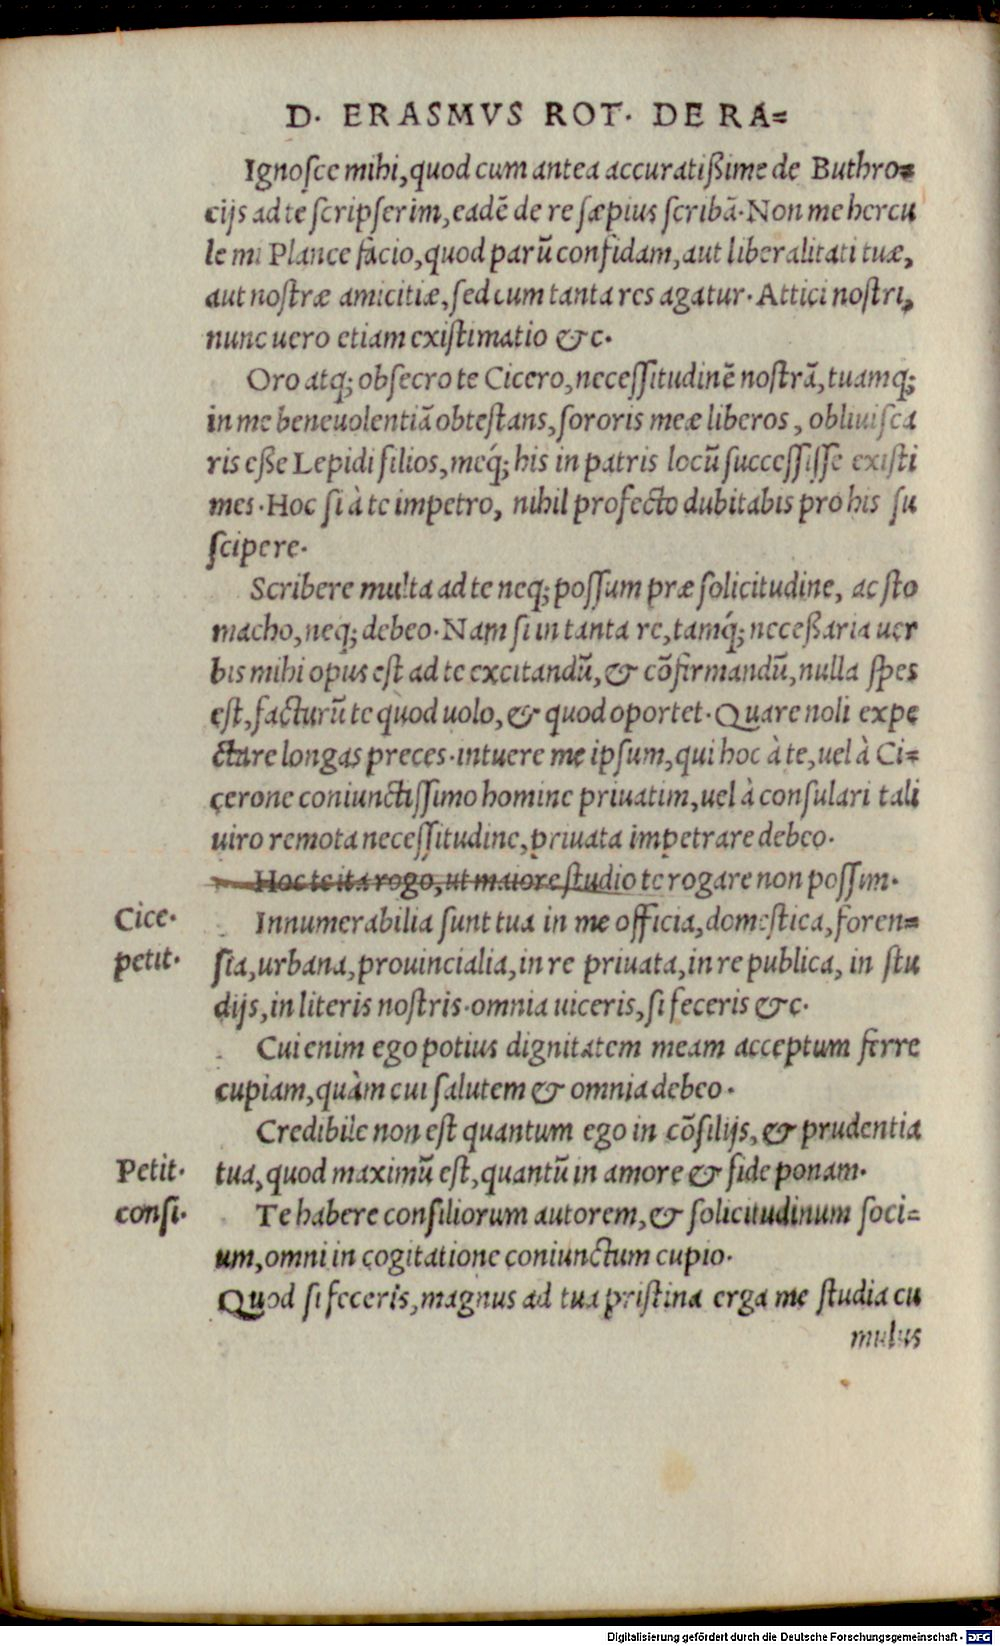 D. ERASMVS ROT. DE RA=
Ignosce mihi, quod cum antea accuratißime de Buthro=
cijs ad te scripserim, eadē de re sæpius scribā. Non me hercu
le mi Plance facio, quod parū confidam, aut liberalitati tuæ,
aut nostræ amicitiæ, sed cum tanta res agatur. Attici nostri,
nunc uero etiam existimatio &c.
Oro atq; obsecro te Cicero, necessitudinē nostrā, tuamq;
in me beneuolentiā obtestans, sororis meæ liberos, obliuisca
ris eße Lepidi filios, meq́; his in patris locū successisse existi
mes. Hoc si à te impetro, nihil profecto dubitabis pro his su
scipere.
Scribere multa ad te neq; possum præ solicitudine, ac sto
macho, neq; debeo. Nam si in tanta re, tamq́; neceßaria uer
bis mihi opus est ad te excitandū, & cōfirmandū, nulla spes
est, facturū te quod uolo, & quod oportet. Quare noli expe
ctare longas preces. intuere me ipsum, qui hoc à te, uel à Ci=
cerone coniunctissimo homine priuatim, uel à consulari tali
uiro remota necessitudine, priuata impetrare debeo.
Hoc te ita rogo, ut maiore studio te rogare non possim.
Cice. Innumerabilia sunt tua in me officia, domestica, foren=
petit. sia, urbana, prouincialia, in re priuata, in re publica, in stu
dijs, in literis nostris. omnia uiceris, si feceris &c.
Cui enim ego potius dignitatem meam acceptum ferre
cupiam, quàm cui salutem & omnia debeo.
Credibile non est quantum ego in cōsilijs, & prudentia
Petit. tua, quod maximū est, quantū in amore & fide ponam.
consi. Te habere consiliorum autorem, & solicitudinum soci=
um, omni in cogitatione coniunctum cupio.
Quod si feceris, magnus ad tua pristina erga me studia cu
mulus
Digitalisierung gefördert durch die Deutsche Forschungsgemeinschaft - DFG